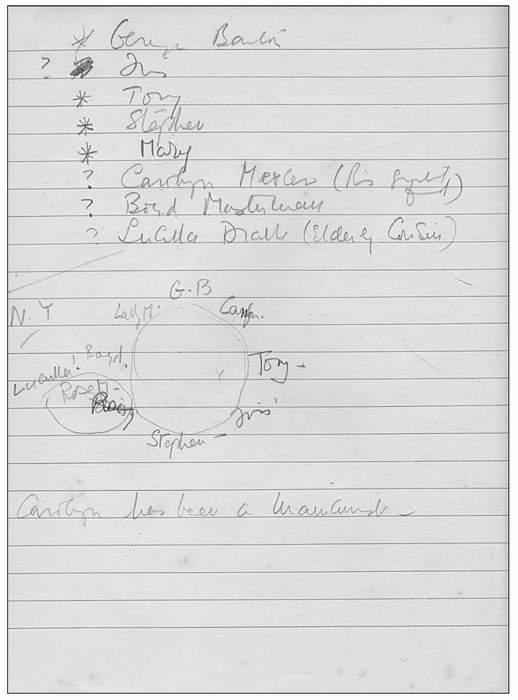 * George Barton
? Iris
* Tony
* Stephen
* Mary
? Carolyn Mercer (His
? Boyd Masterman
? Lucilla Drake (Elderly Cousin)
G.B
N.Y
Lady M.
Carolyn.
Boyd.
Tony -
Lucilla!
Rose M -
Iris
Stephen -
Carolyn has been a